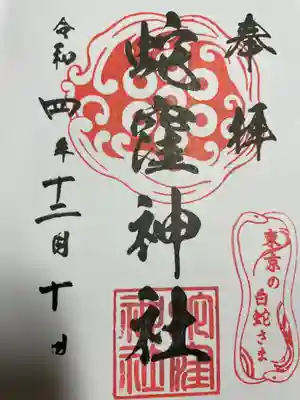 奉拝
蛇窪神社
令和四年十二月十日
東京の
白蛇さま
蛇窪
神社